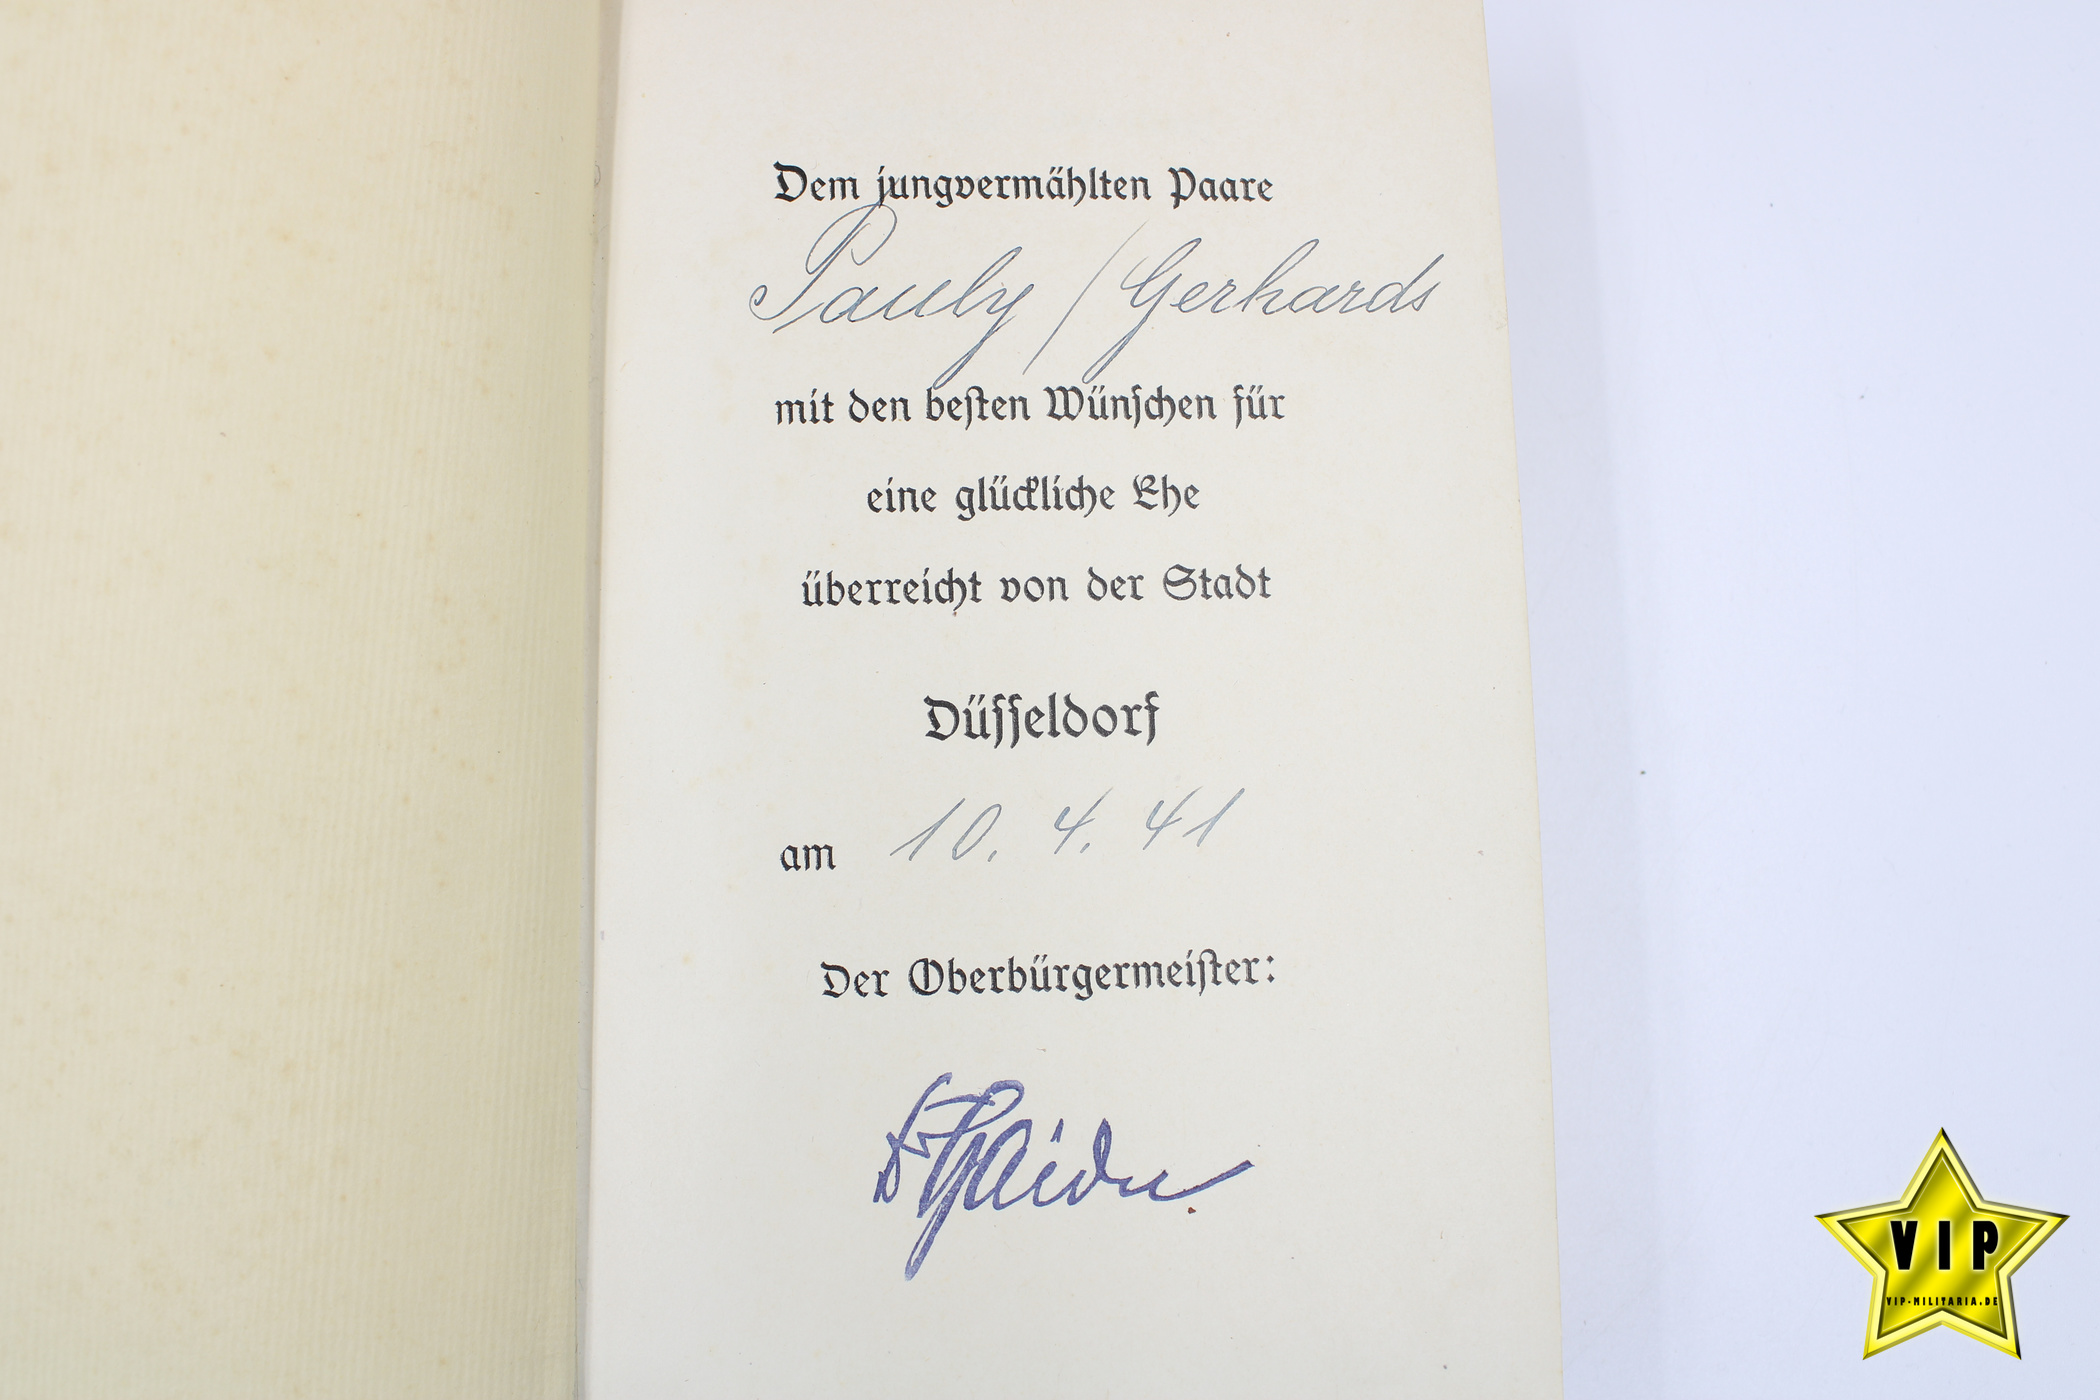 Dem jungvermählten Paare
Pauly / Gerhards
mit den besten Wünschen für
eine glückliche Ehe
überreicht von der Stadt
Düsseldorf
am 10. 4. 41
Der Oberbürgermeister:
Dr Haidn
VIP
VIP-MILITARIA.DE